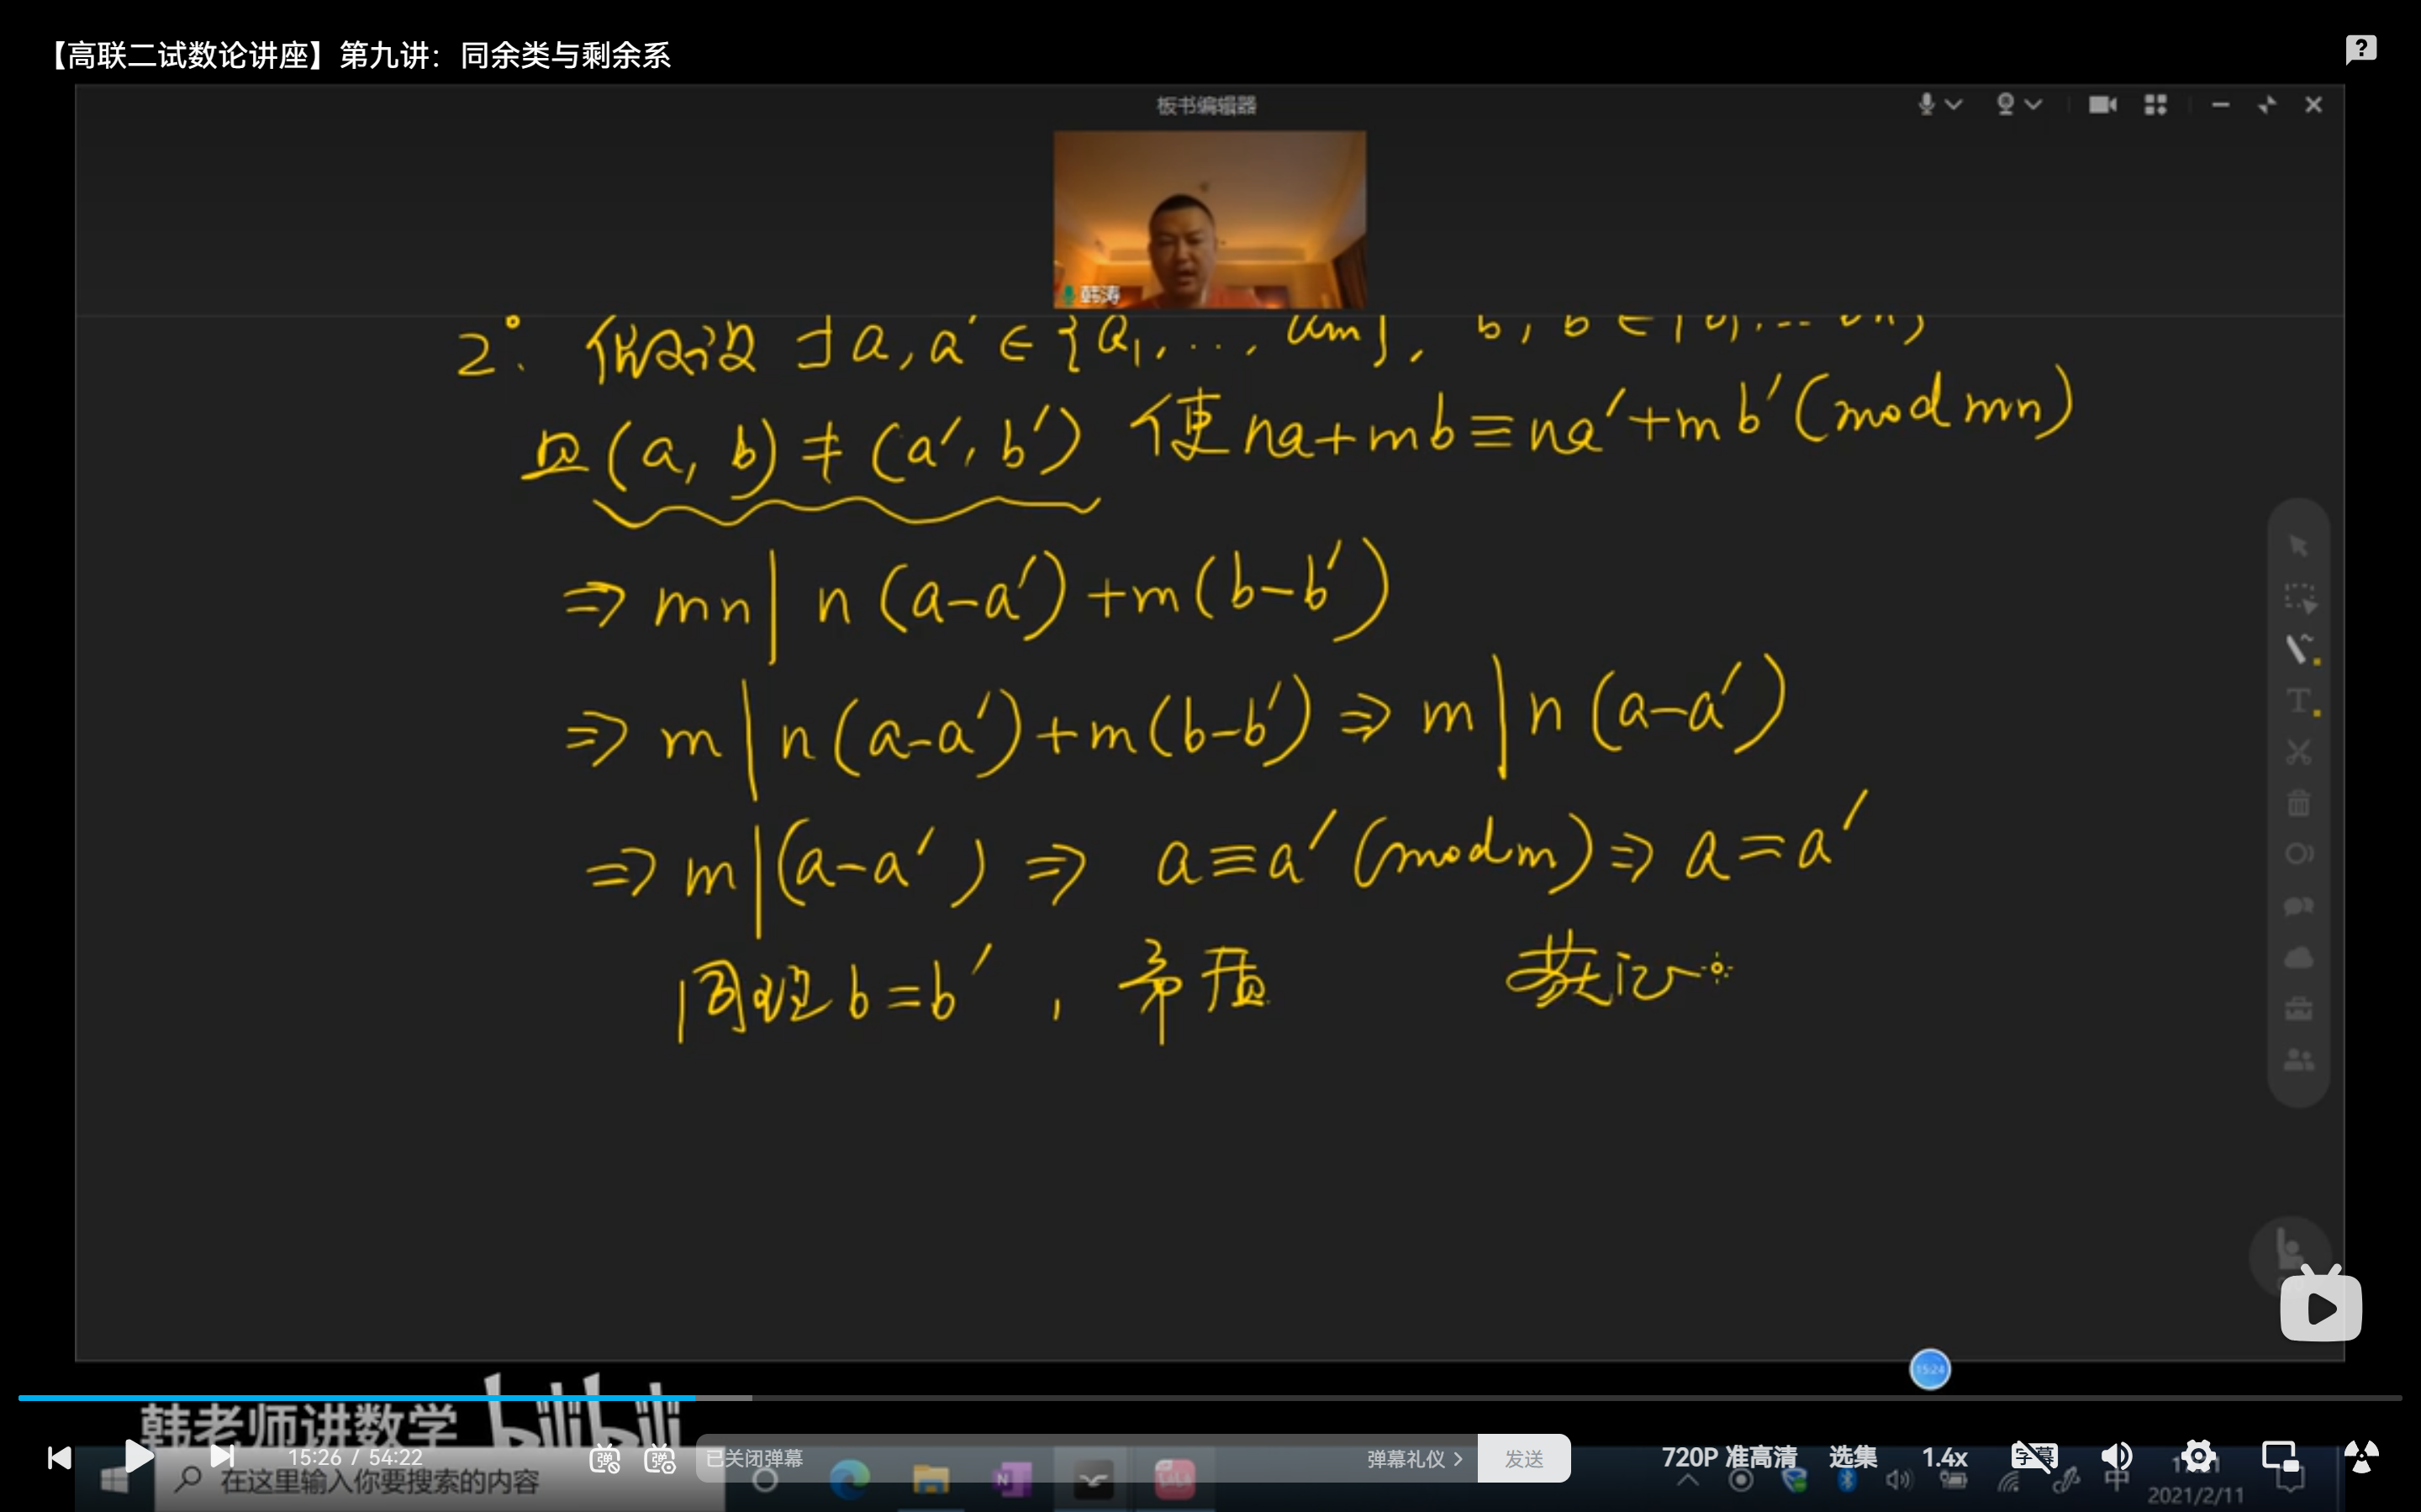 【高联二试数论讲座】第九讲：同余类与剩余系
板书编辑器
韩涛
2°. 假设∃a, a′∈{a₁, ..., aₘ},
且(a, b)≠(a′, b′) 使na+mb≡na′+mb′(mod mn)
⇒ mn | n(a-a′)+m(b-b′)
⇒ m | n(a-a′)+m(b-b′) ⇒ m | n(a-a′)
⇒ m | (a-a′) ⇒ a≡a′(mod m) ⇒ a=a′
同理 b=b′, 矛盾 获证
15:24
韩老师讲数学 bilibili
15:26 / 54:22
已关闭弹幕 弹幕礼仪 发送
720P 准高清 选集 1.4x
在这里输入你要搜索的内容
中
2021/2/11